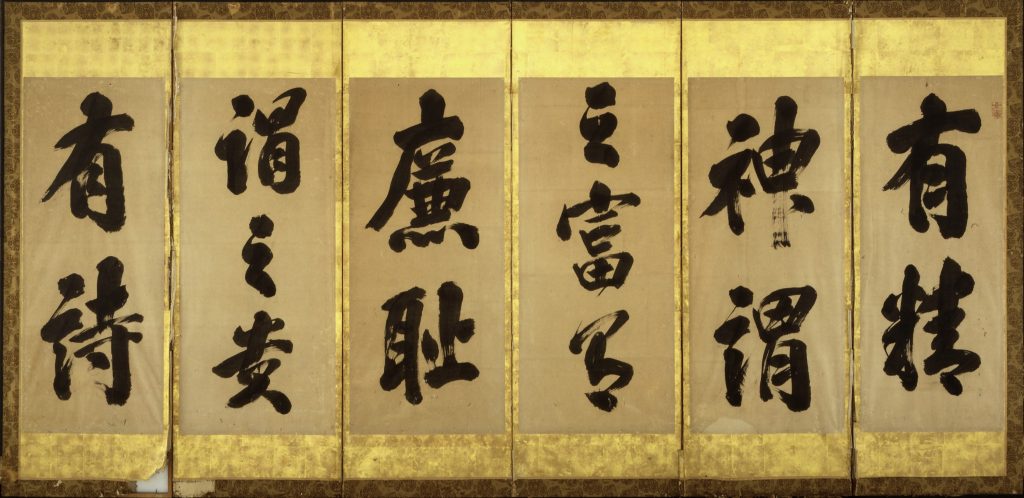 有精
神謂
之富有
廉恥
謂之貴
有詩